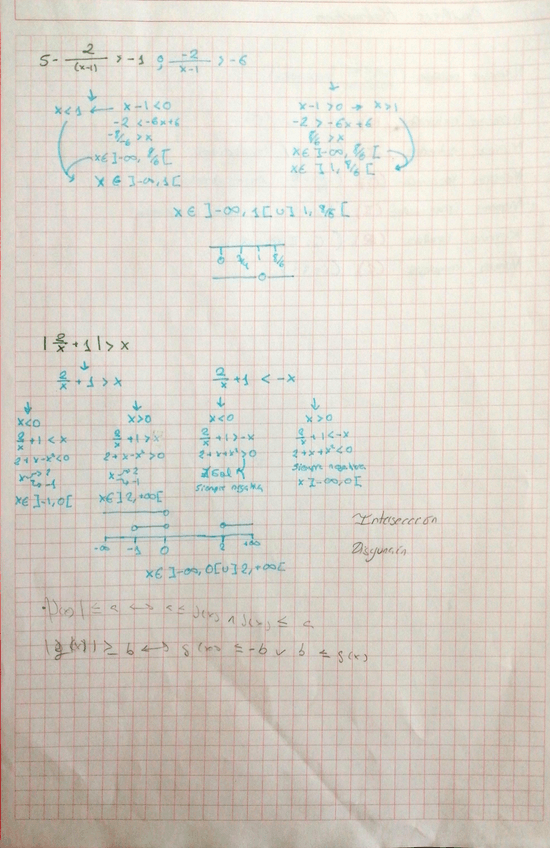 5 - 2/(x-1) > -1 ; -2/x-1 > -6
x<1 ← x-1<0
-2 < -6x+6
-8/-6 > x
x∈]-∞, 8/6[
x∈]-∞, 1[
x-1>0 → x>1
-2 > -6x+6
8/6 > x
x∈]-∞, 8/6[
x∈]1, 8/6[
x∈]-∞, 1[∪]1, 8/6[
0 1 8/6
|2/x + 1| > x
2/x + 1 > x
2/x + 1 < -x
x<0
2/x + 1 < x
2+x-x²<0
x 2 -1
x∈]-1, 0[
x>0
2/x + 1 > x
2+x-x²>0
x 2 -1
x∈]2, +∞[
x<0
2/x + 1 > -x
2+x+x²>0
siempre negativa
x>0
2/x + 1 < -x
2+x+x²<0
siempre negativa
x]-∞, 0[
-∞ -1 0 2 +∞
x∈]-∞, 0[∪]2, +∞[
Intersección
Disyunción
≤ a
|g(x)| ≥ b ↔ g(x) ≤ -b ∨ b ≤ g(x)